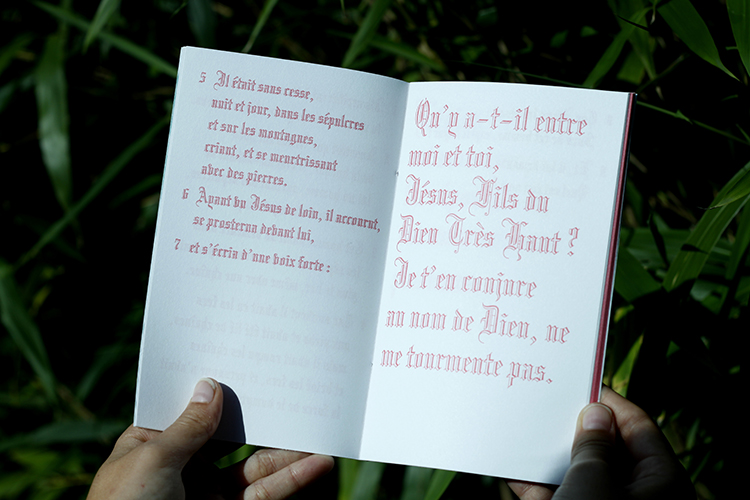 5 Il était sans cesse,
nuit et jour, dans les sépulcres
et sur les montagnes,
criant, et se meurtrissant
avec des pierres.
6 Ayant vu Jésus de loin, il accourut,
se prosterna devant lui,
7 et s'écria d'une voix forte :
Qu'y a-t-il entre
moi et toi,
Jésus, Fils du
Dieu Très Haut ?
Je t'en conjure
au nom de Dieu, ne
me tourmente pas.